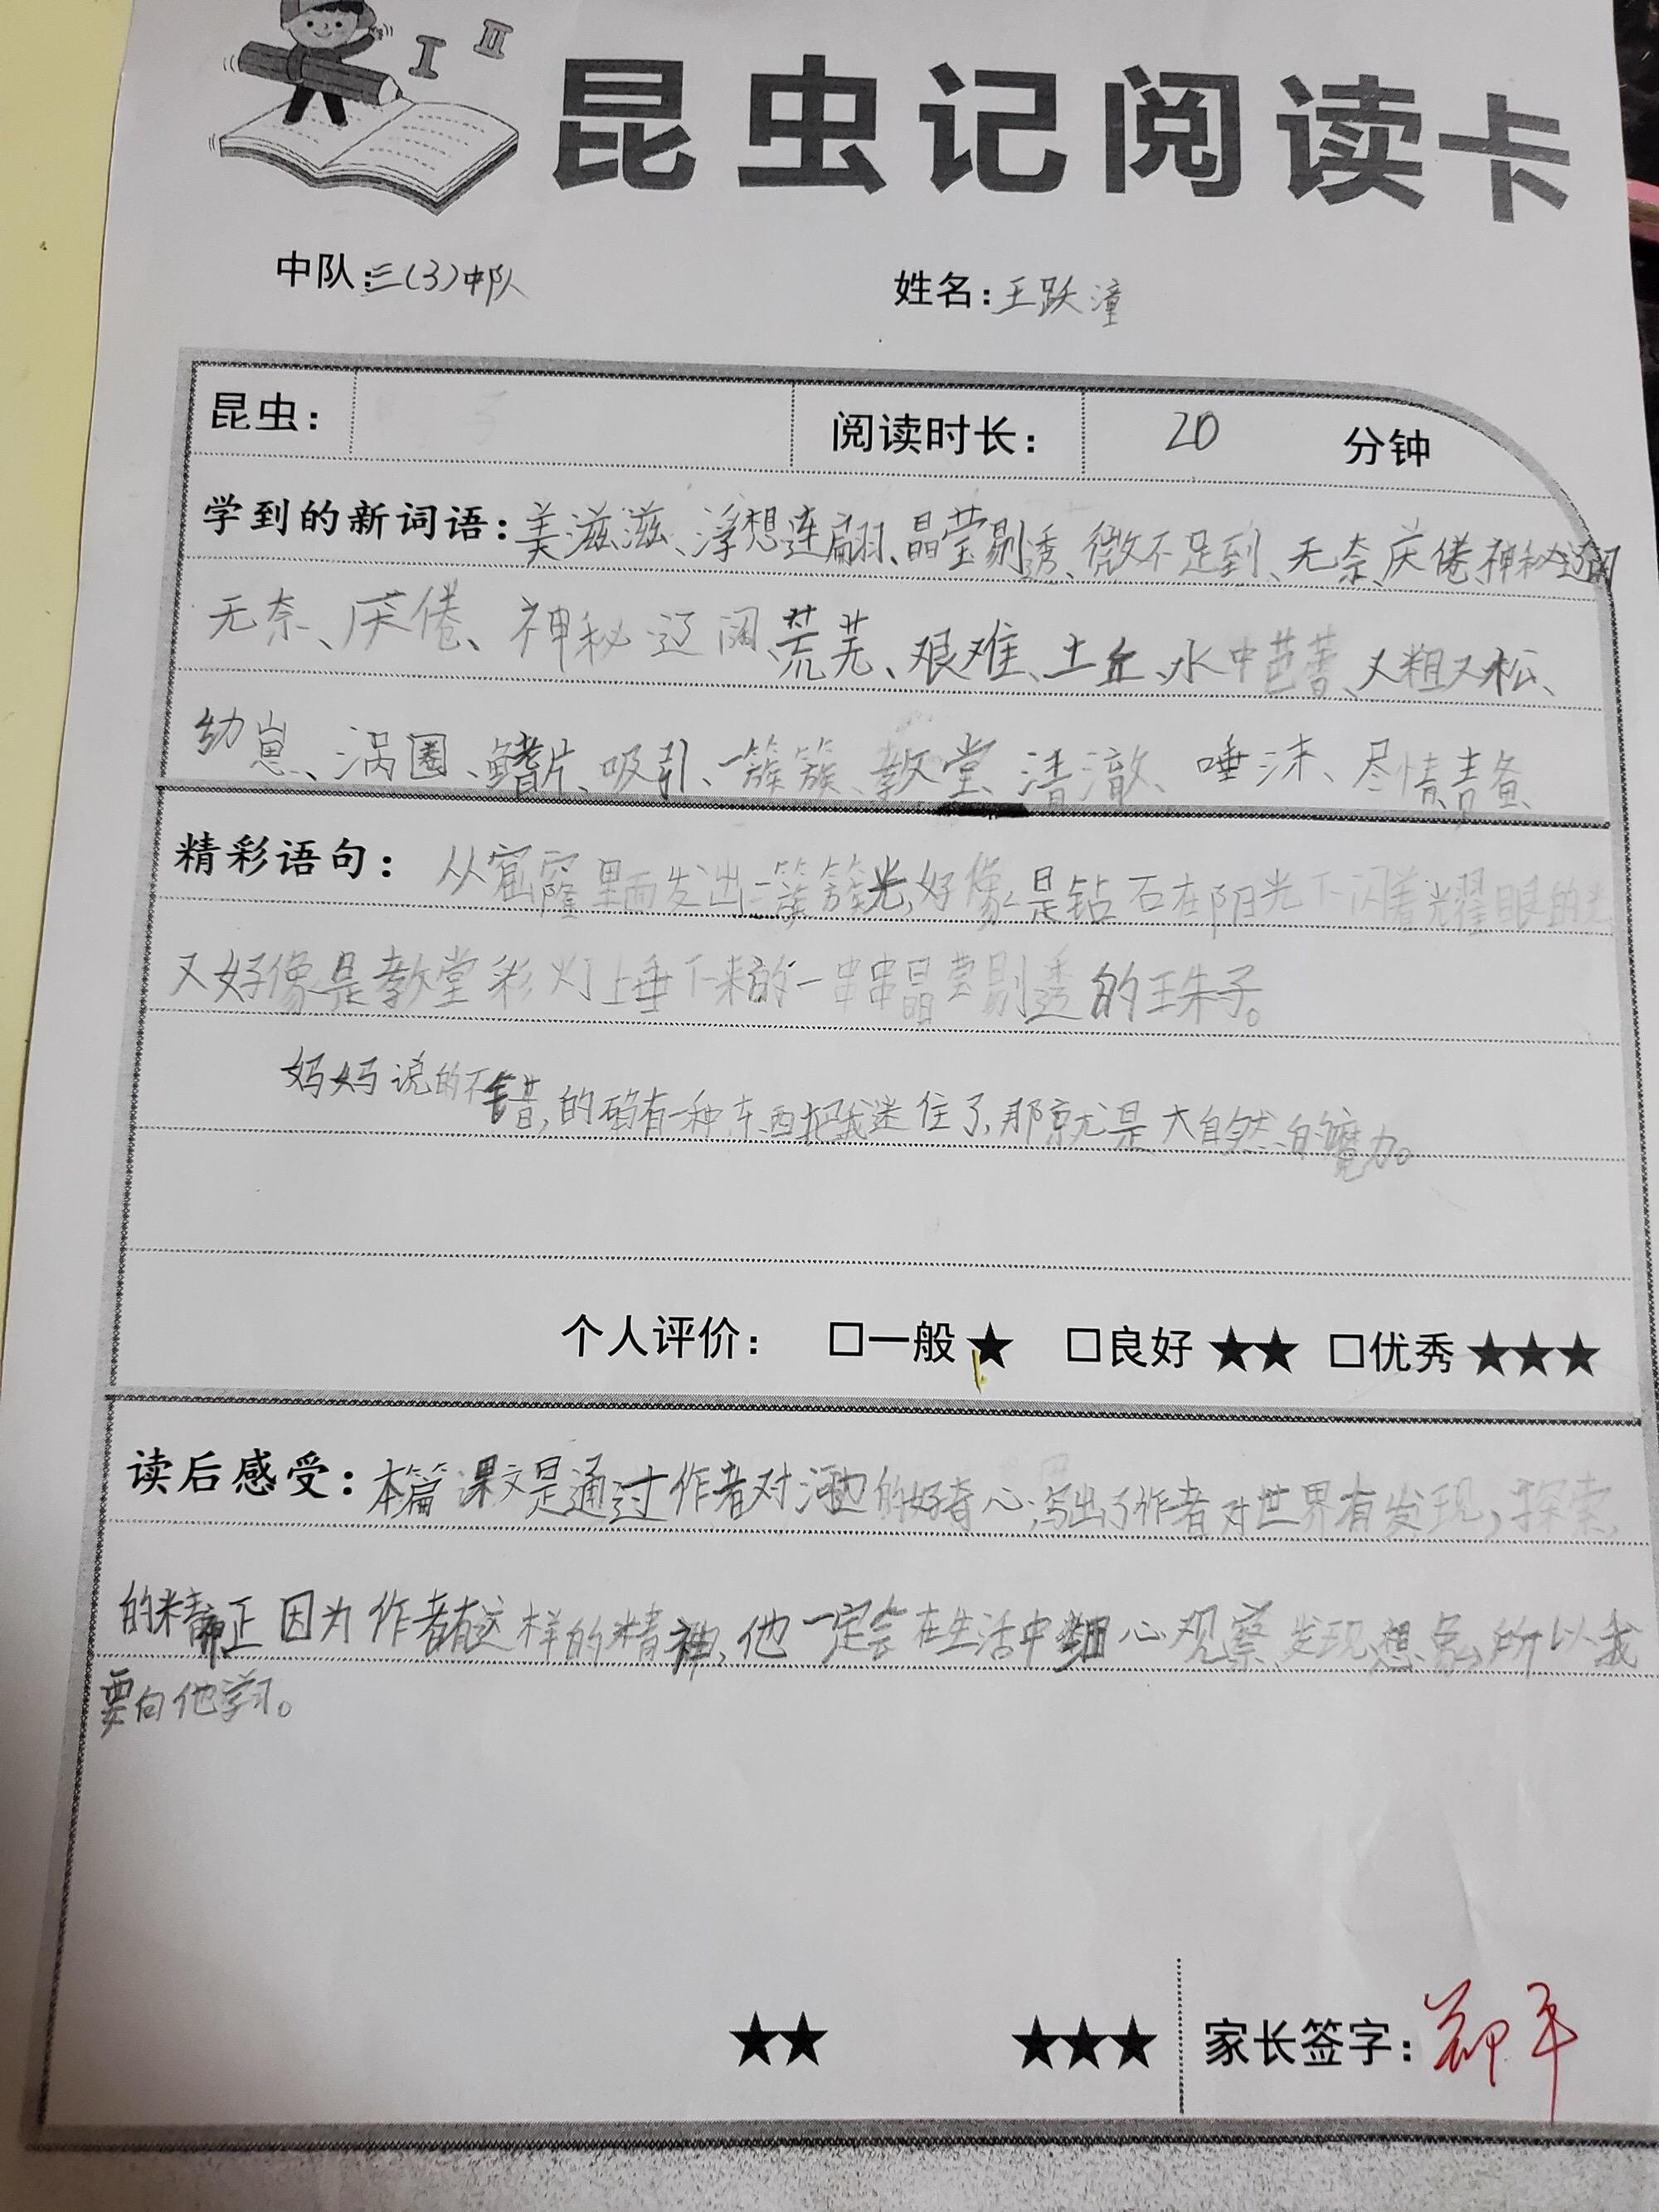 I II
昆虫记阅读卡
中队:三(3)中队 姓名:王跃潼
昆虫: 阅读时长: 20 分钟
学到的新词语:美滋滋、浮想连翩、晶莹剔透、微不足到、无奈、厌倦、神秘辽阔
无奈、厌倦、神秘辽阔、荒芜、艰难、土丘、水中芭蕾、又粗又松、
幼崽、涡圈、鳍片、吸引、一簇簇、教堂、清澈、唾沫、尽情
精彩语句: 从窟窿里面发出一簇簇光,好像是钻石在阳光下闪着光耀眼的光
又好像是教堂彩灯上垂下来的一串串晶莹剔透的珠子。
妈妈说的不错,的确有一种东西把我迷住了,那就是大自然的魔力。
个人评价: □一般★ □良好★★ □优秀★★★
读后感受:本篇课文是通过作者对河边的好奇心,写出了作者对世界有发现,探索,
的精神正因为作者有这样的精神,他一定会在生活中细心观察、发现、想象,所以我
要向他学习。
★★ ★★★ 家长签字: